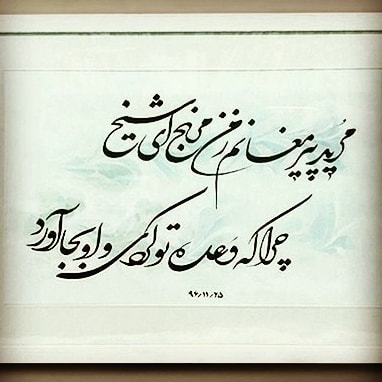 مرید پیر مغانم ز من مرنج ای شیخ
چرا که وعده تو کردی و او بجا آورد
۹۶/۱۱/۲۵